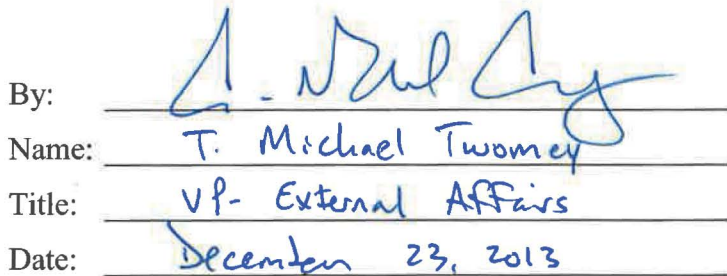 By:
Name: T. Michael Twomey
Title: VP- External Affairs
Date: December 23, 2013